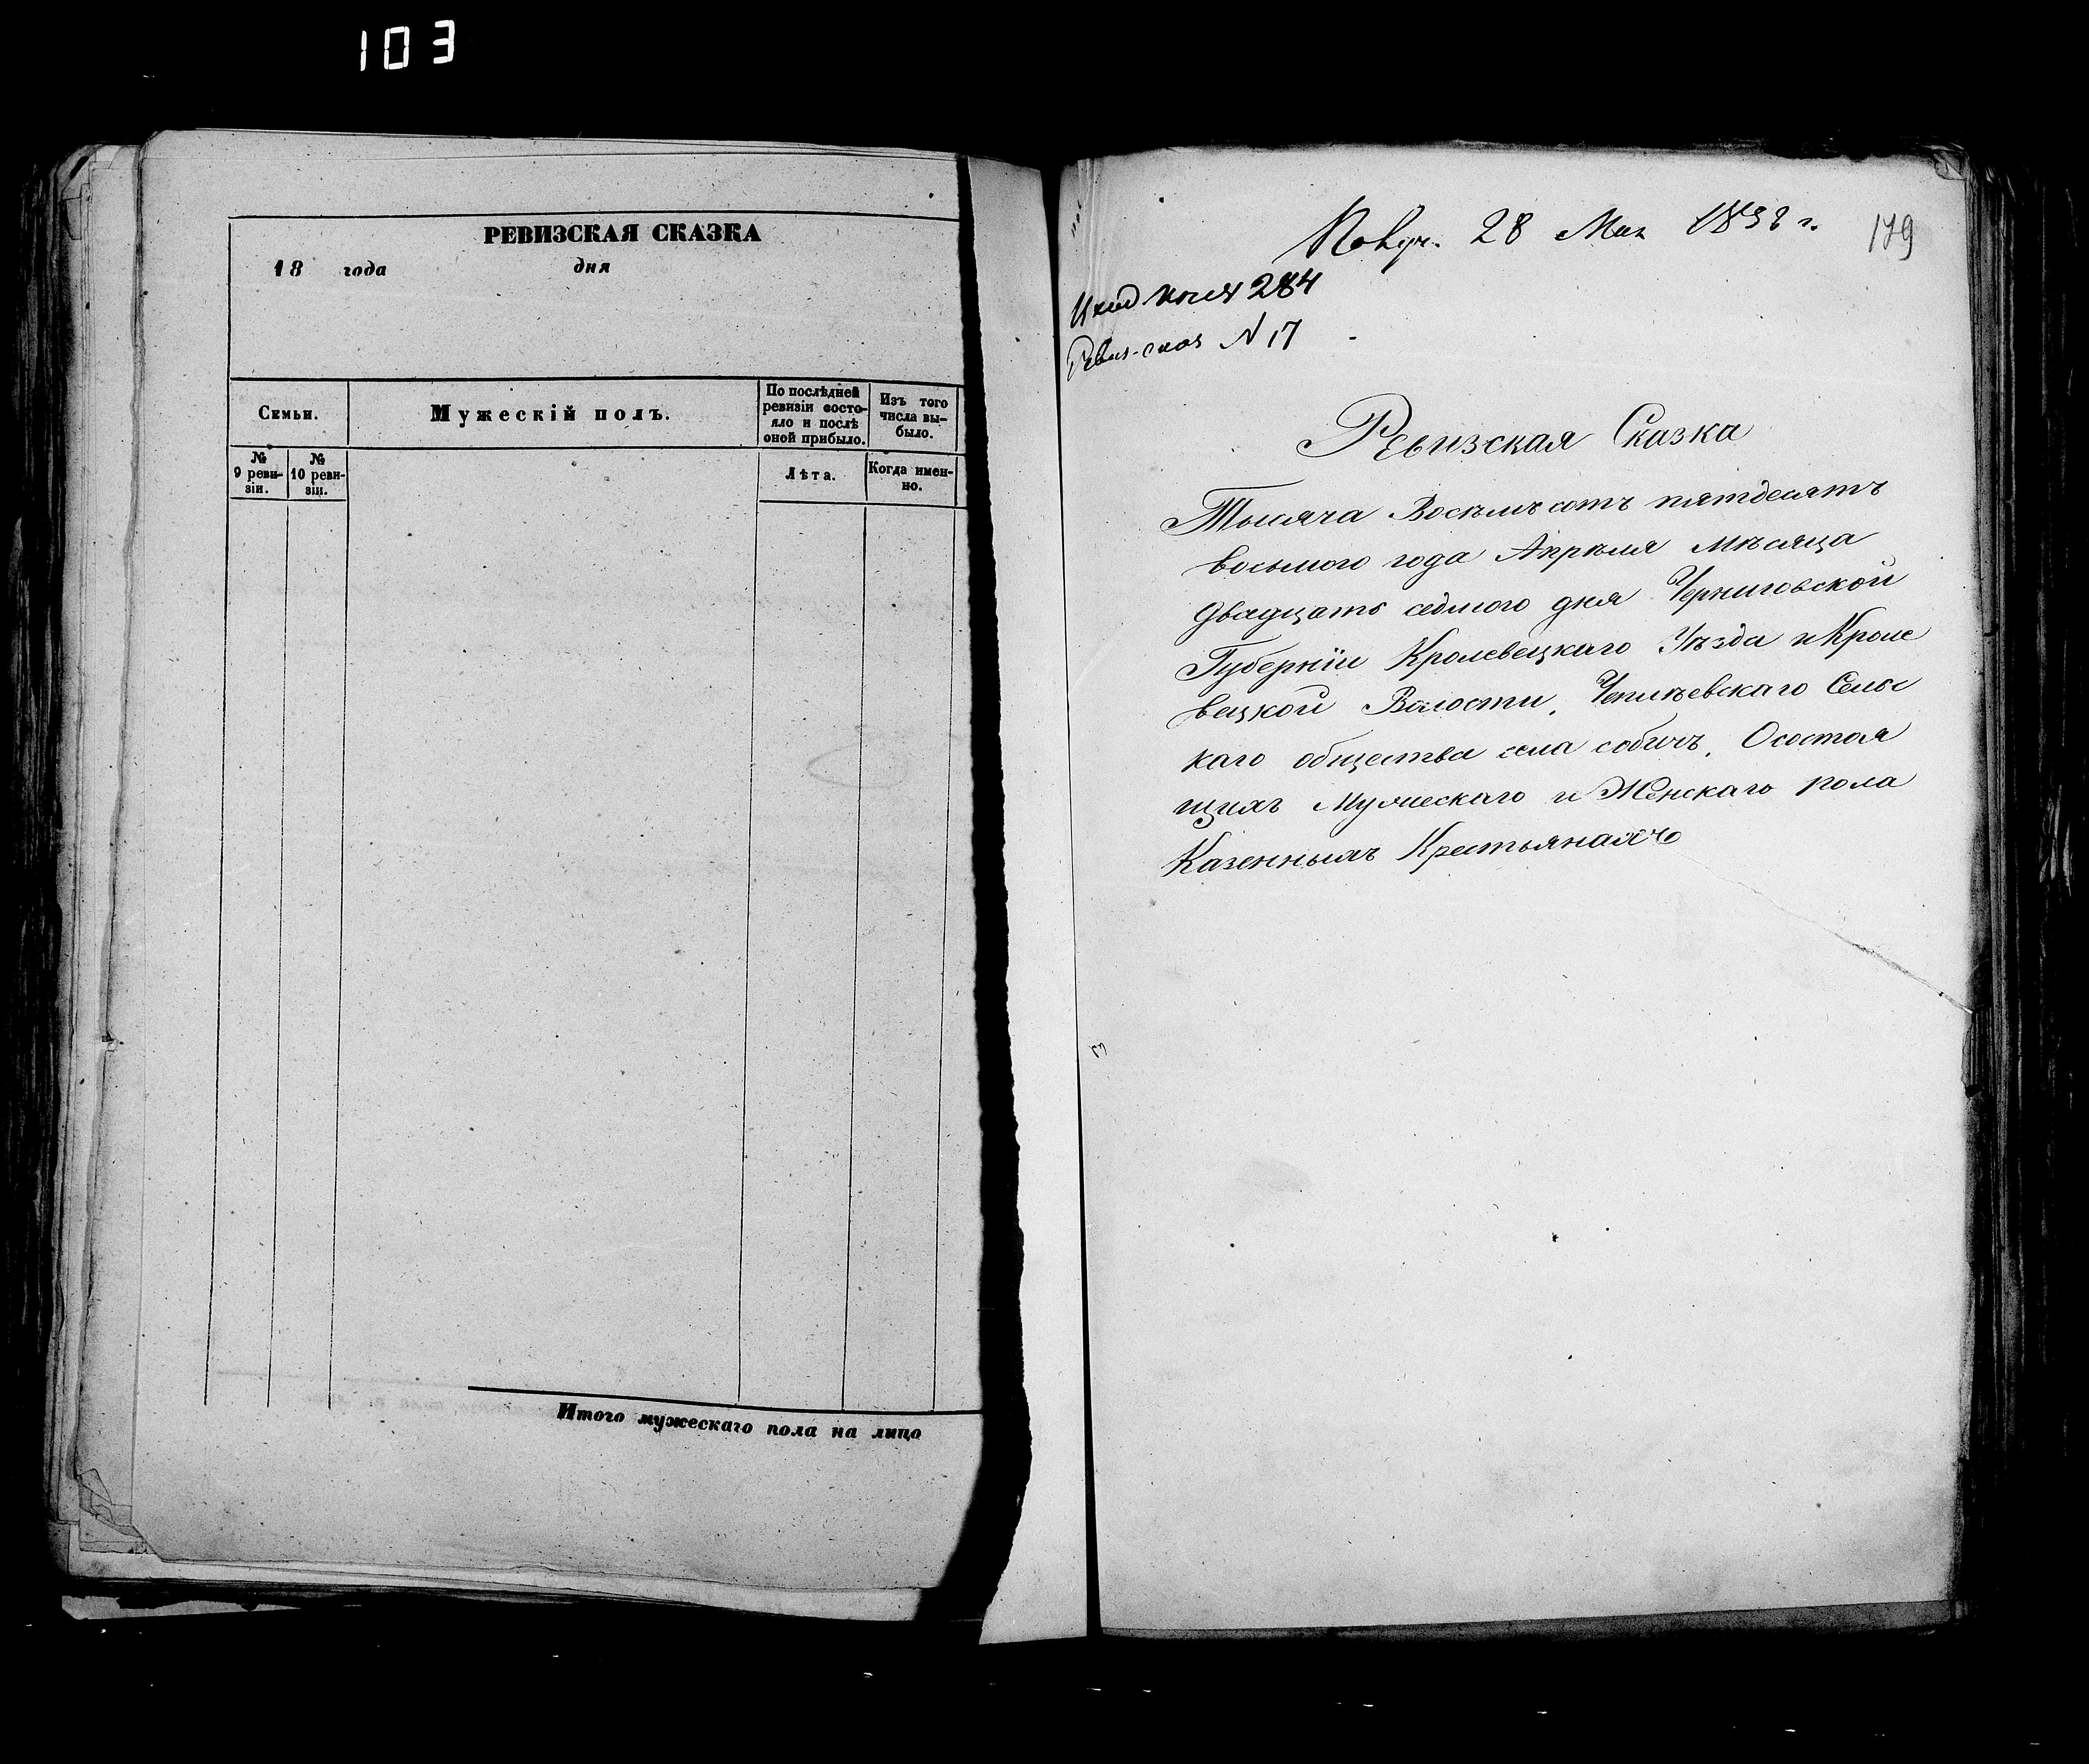 103
РЕВИЗСКАЯ СКАЗКА
18 года дня
Семьи.
Мужескій полъ.
По послѣдней
ревизіи состо-
яло и послѣ
оной прибыло.
Изъ того
числа вы-
было.
№
9 реви-
зіи.
№
10 реви-
зіи.
Лѣта.
Когда имен-
но.
Итого мужескаго пола на лицо
28 Мая 1858 г.
179
284
Ревиз. сказ N 17
Ревизская Сказка
Тысяча Восемъсотъ пятдесятъ
восьмого года Апрѣля Мѣсяца
двадцать седмого дня Черниговской
Губернїи Кролевецкаго Уѣзда и Кроле
вецкой Волости, Чепліевскаго Сельс
каго общества села собичъ, Осостоя
щихъ Мужескаго и Женскаго пола
Казенныхъ Крестьянахъ